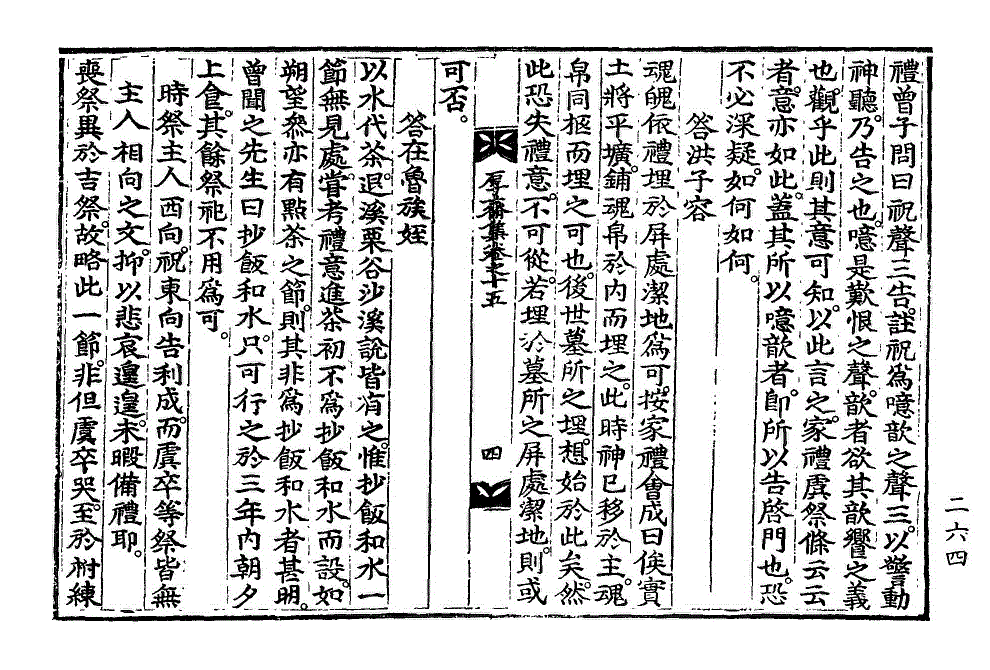 禮曾子問曰祝聲三告註祝爲噫歆之聲三以警動
神聽乃告之也噫是歎恨之聲歆者欲其歆饗之義
也觀乎此則其意可知以此言之家禮虞祭條云云
者意亦如此蓋其所以噫歆者卽所以告啓門也恐
不必深疑如何如何
答洪子容
魂魄依禮埋於屏處潔地爲可按家禮會成曰俟實
土將平壙鋪魂帛於內而埋之此時神已移於主魂
帛同柩而埋之可也後世墓所之埋想始於此矣然
此恐失禮意不可從若埋於墓所之屏處潔地則或
厚齋集卷之十五
四
可否
答在魯族姪
以水代茶退溪栗谷沙溪說皆有之惟抄飯和水一
節無見處嘗考禮意進茶初不爲抄飯和水而設如
朔望參亦有點茶之節則其非爲抄飯和水者甚明
曾聞之先生曰抄飯和水只可行之於三年內朝夕
上食其餘祭祀不用爲可
時祭主人西向祝東向告利成而虞卒等祭皆無
主人相向之文抑以悲哀遑遑未暇備禮耶
喪祭異於吉祭故略此一節非但虞卒哭至於祔練
二六四